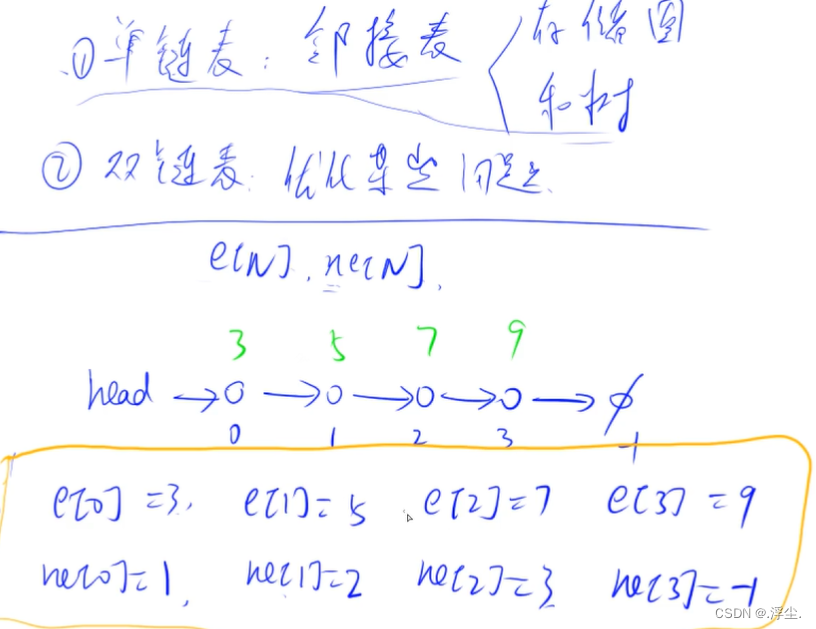 ①单链表：邻接表 存储图
和树
②双链表：优化某些问题.
e[N]. ne[N].
3 5 7 9
head → 0 → 0 → 0 → 0 → ∅
0 1 2 3 -1
e[0]=3, e[1]=5 e[2]=7 e[3]=9
ne[0]=1, ne[1]=2 ne[2]=3 ne[3]=-1
CSDN @.浮尘.